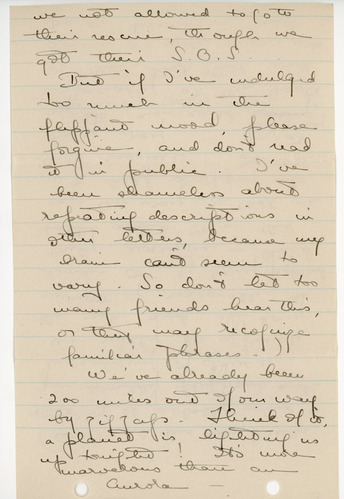 we not allowed to go to
their rescue, though we
got their S.O.S.
But if I've indulged
too much in the
flippant mood, please
forgive, and don't read
it in public. I've
been shameless about
repeating descriptions in
other letters, because my
brain can't seem to
vary. So don't let too
many friends hear this,
or they may recognize
familiar phrases.))
We've already been
200 miles out of our way
by zig zags. Think of it,
a planet is lighting us
up tonight! It's more
marvelous than an
Aurora —